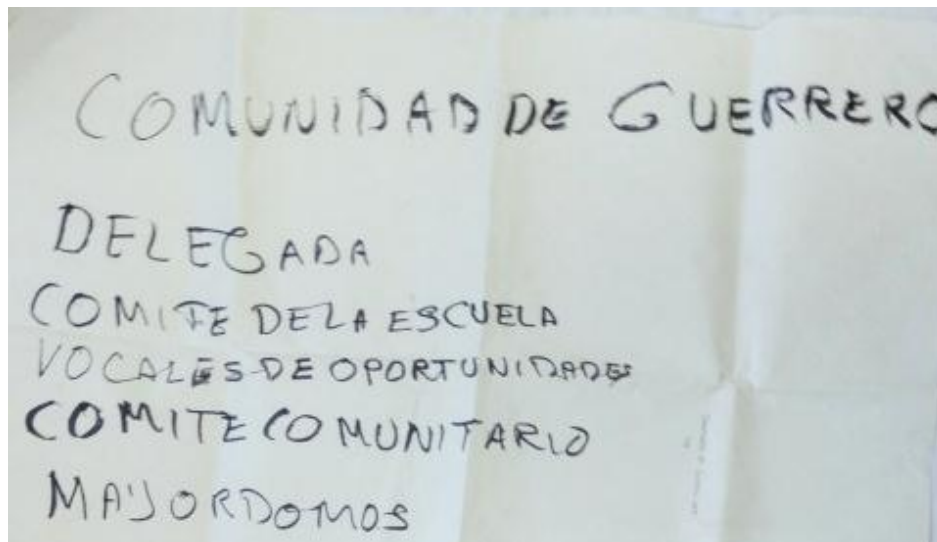 COMUNIDAD DE GUERRERO
DELEGADA
COMITE DE LA ESCUELA
VOCALES DE OPORTUNIDADES
COMITE COMUNITARIO
MAYORDOMOS